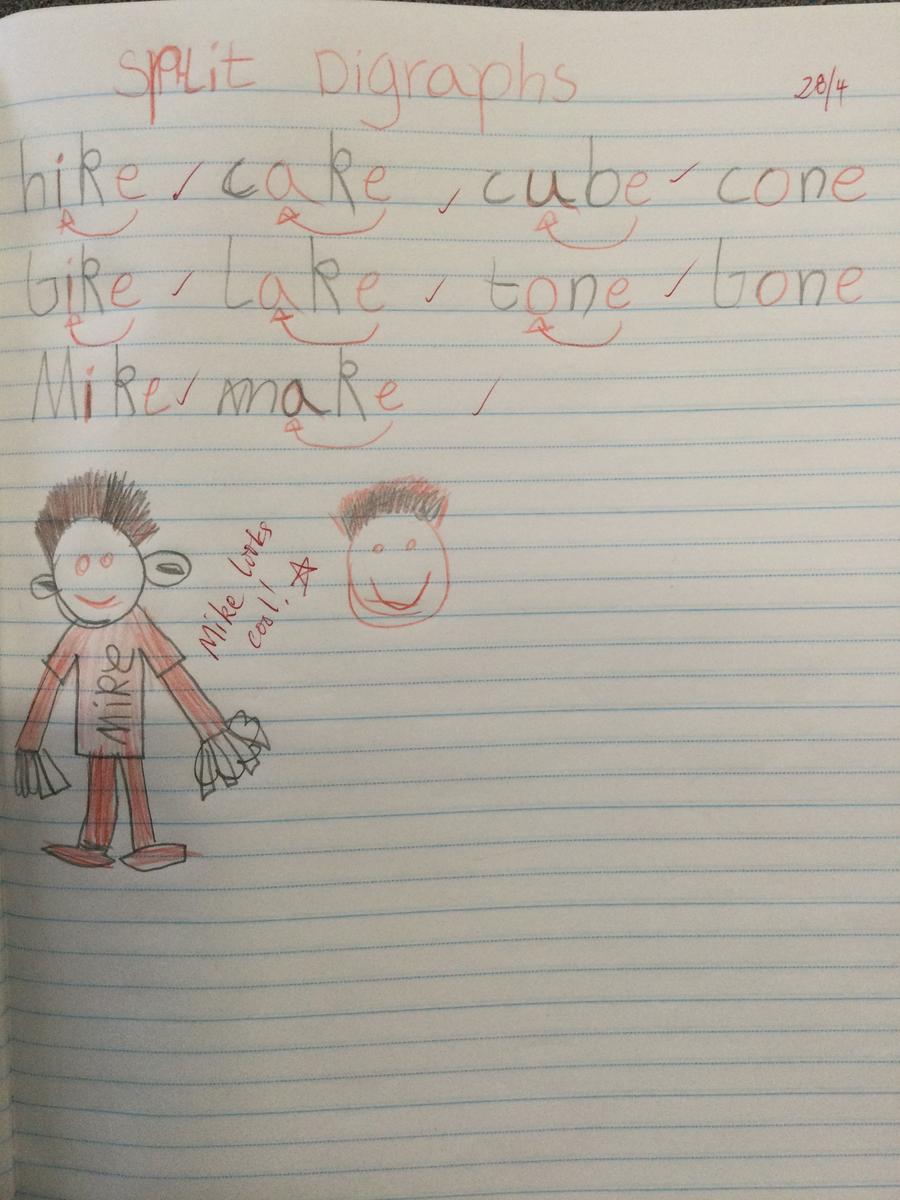 Split Digraphs 28/4
hike cake cube cone
bike Lake tone bone
Mike make
Mike looks
cool!
Mike